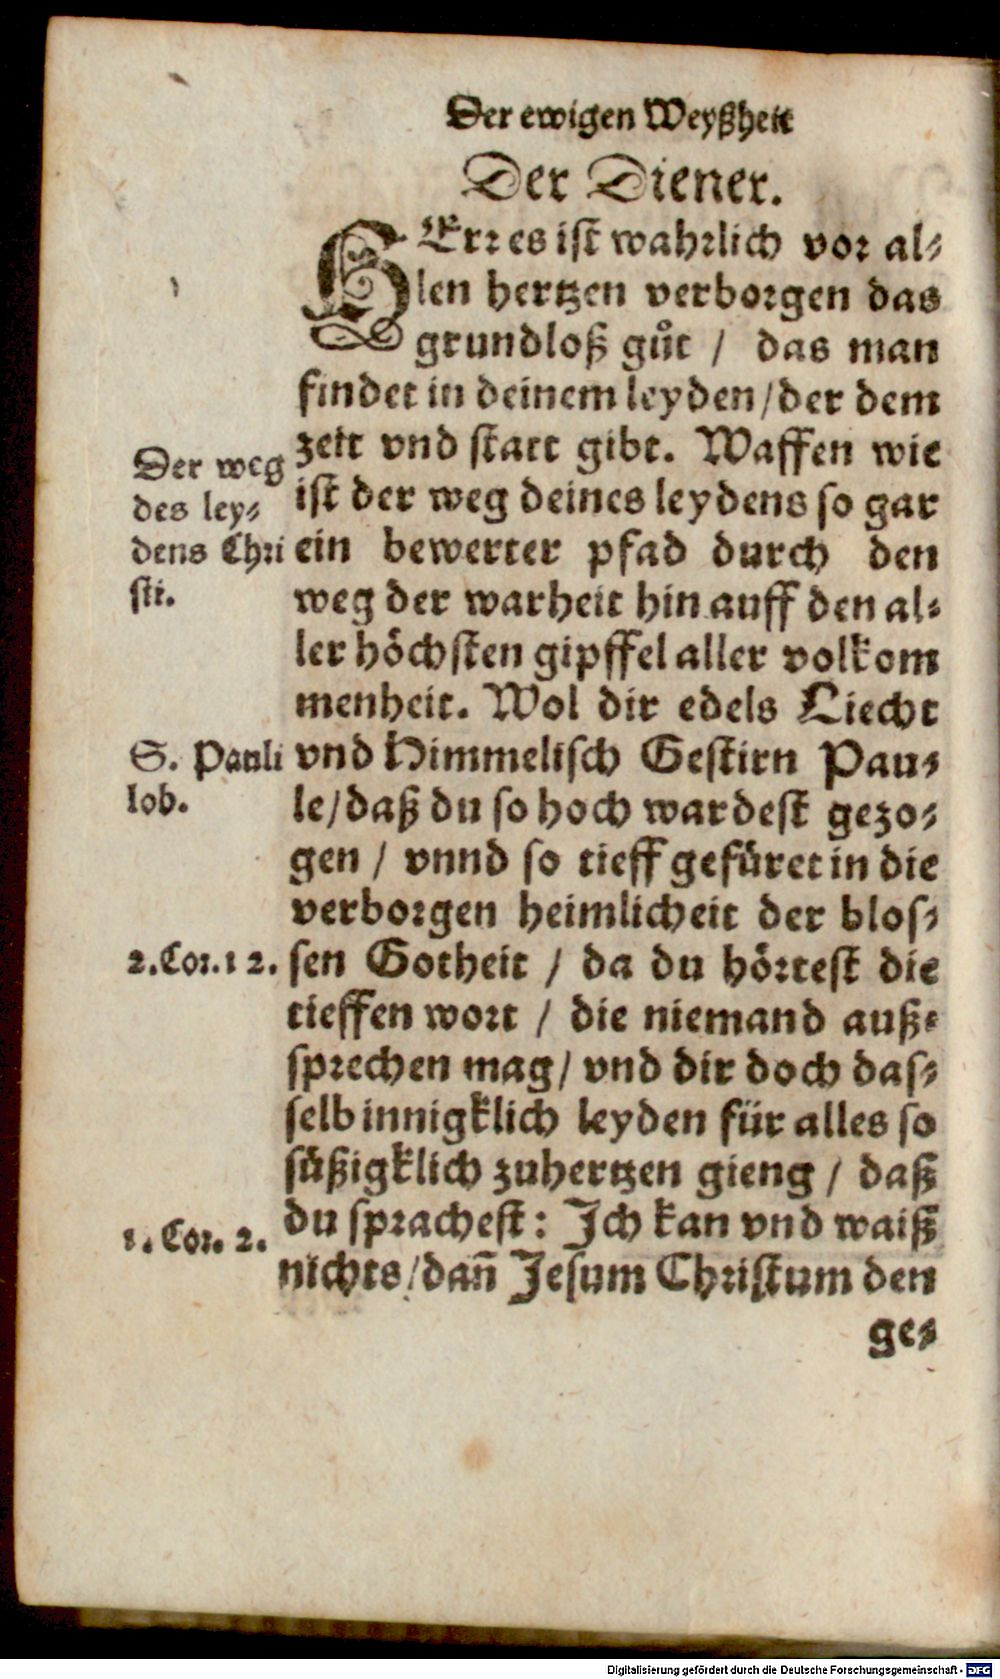 Der ewigen Weyßheit
Der Diener.
HErr es ist wahrlich vor al⸗
len hertzen verborgen das
grundloß gůt / das man
findet in deinem leyden / der dem
zeit vnd statt gibt. Waffen wie
ist der weg deines leydens so gar
ein bewerter pfad durch den
weg der warheit hin auff den al⸗
ler höchsten gipffel aller volkom
menheit. Wol dir edels Liecht
vnd Himmelisch Gestirn Pau⸗
le / daß du so hoch wardest gezo⸗
gen / vnnd so tieff gefüret in die
verborgen heimlicheit der blos⸗
sen Gotheit / da du hörtest die
tieffen wort / die niemand auß⸗
sprechen mag / vnd dir doch das⸗
selb innigklich leyden für alles so
süßigklich zuhertzen gieng / daß
du sprachest: Ich kan vnd waiß
nichts / dañ Jesum Christum den
ge⸗
Der weg
des ley⸗
dens Chri
sti.
S. Pauli
lob.
2. Cor. 12.
1. Cor. 2.
Digitalisierung gefördert durch die Deutsche Forschungsgemeinschaft - DFG